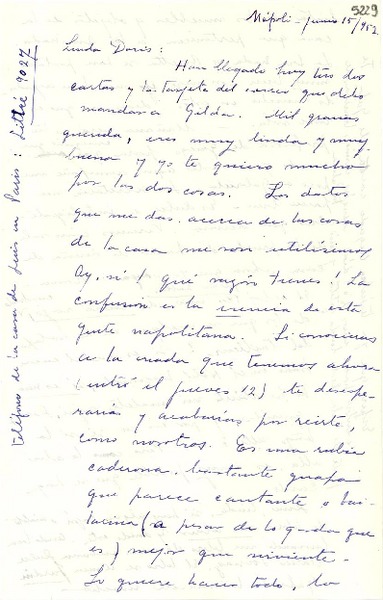 5229
Nápoli - junio 15/952
Linda Doris:
Han llegado hoy tus dos
cartas y la tarjeta del que debo
mandar a Gilda. Mil gracias
querida, eres muy linda y muy
buena y yo te quiero mucho
por las dos cosas. Los datos
que me das acerca de las cosas
de la casa me son utilísimos
Ay, sí! qué razón tienes! La
confusión es la esencia de esta
gente napolitana. Si conocieras
a la criada que tenemos ahora
(entró el jueves 12) te desespe-
raría y acabarías por reirte,
como nosotros. Es una rubia
caderona, bastante guapa
que parece cantante o bai-
larina (a pesar de lo gorda que
es) mejor que sirviente.
Lo quiere hacer todo, lo
teléfono de la casa de Luis en París: Littré 9027